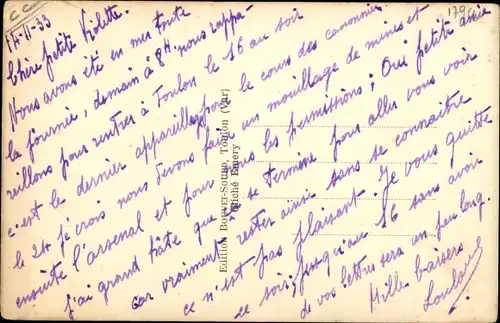 14-11-33
Chère petite Violette.
Nous avons été en mer toute
la journée, demain à 8H nous rappa-
reillons pour rentrer à Toulon le 16 au soir
c'est le dernier appareillage pour le cours des canonniers
le 24 je crois nous devons faire un mouillage de mines et
ensuite l'arsenal et pour tous les permissions; Oui petite amie
j'ai grand hâte que ça se termine pour aller vous voir
car vraiment rester ainsi sans se connaître
ce n'est pas plaisant. Je vous quitte
ce soir; jusqu'au 16 sans avoir
de vos lettres sera un peu long.
Mille baisers
Edition Bouvet-Sourd, Toulon (Var)
Cliché Emery
179